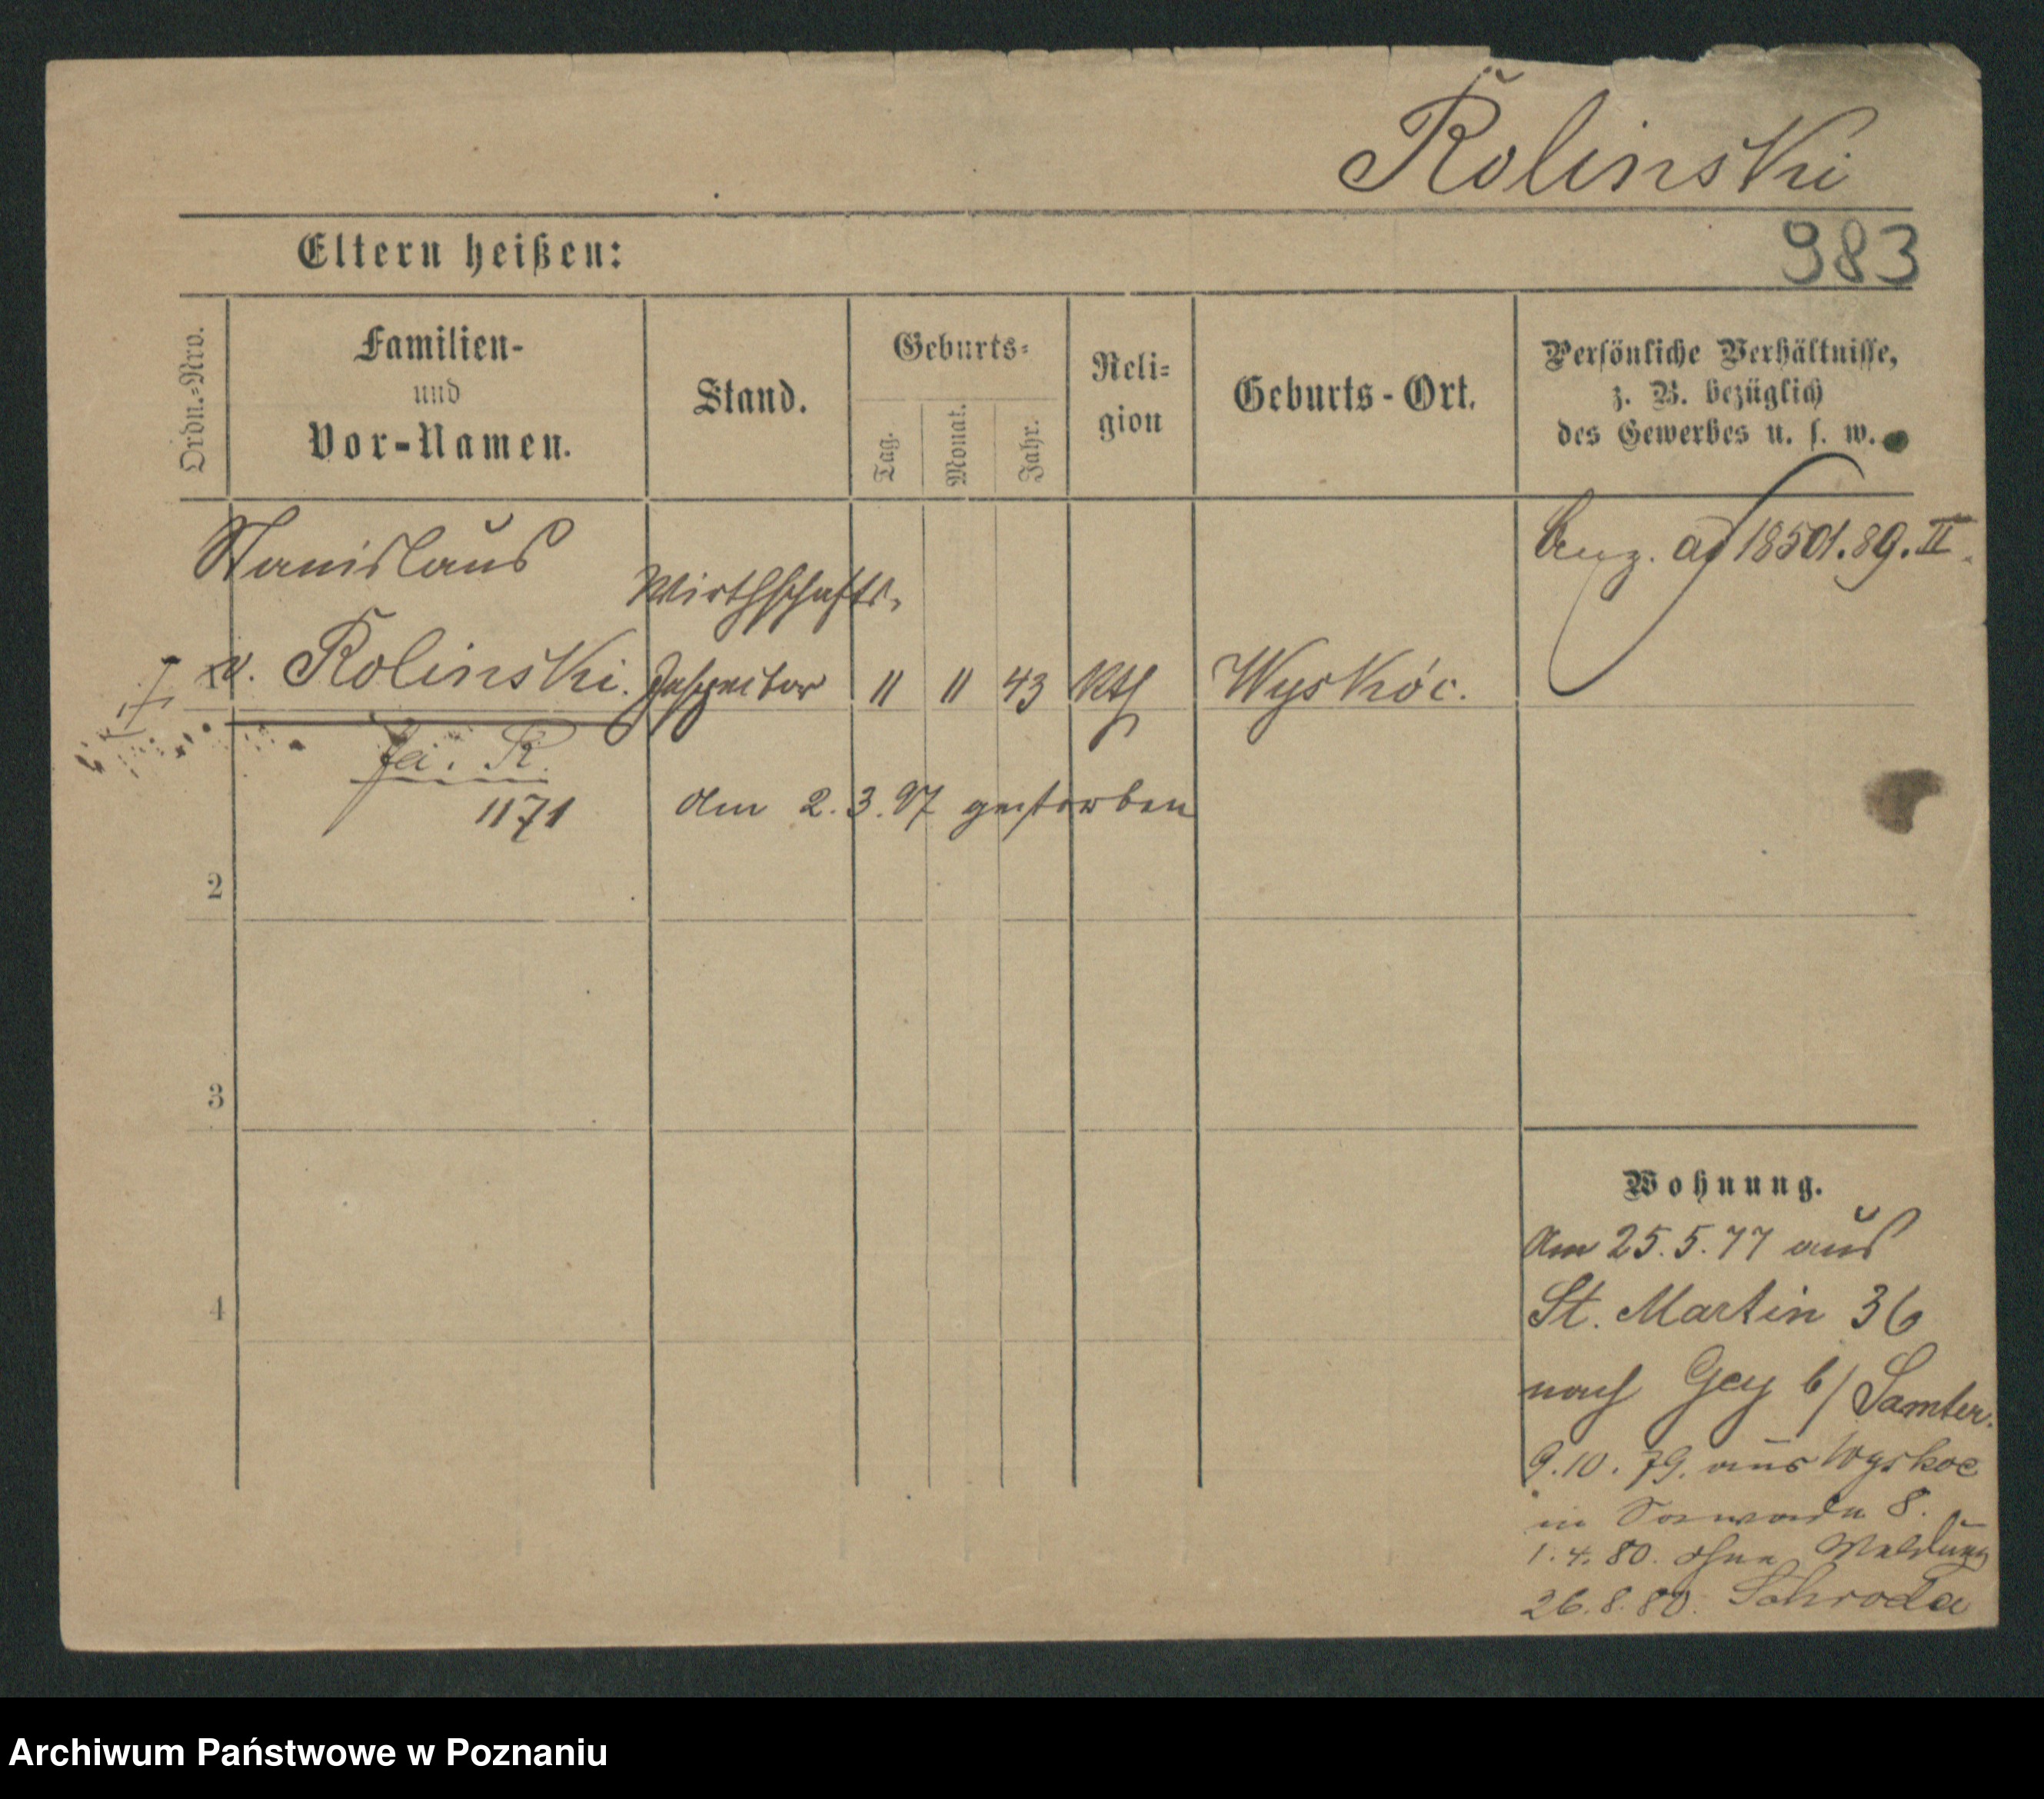 Rolinski
Eltern heißen:
983
Ordn.=Nro.
Familien-
und
Vor-Namen.
Stand.
Geburts=
Tag.
Monat.
Jahr.
Reli=
gion
Geburts-Ort.
Persönliche Verhältnisse,
z. B. bezüglich
des Gewerbes u. s. w.
Stanislaus
Wirthschafts-
18501.89.II.
1
v. Rolinski.
Inspector
11
11
43
Kth
Wyskóc.
R.
1171
Am 2.3.97 gestorben
2
3
4
Wohnung.
Am 25.5.77 aus
St. Martin 36
nach Gay b/ Samter.
9.10.79. aus Wyskoc
in 8.
1.4.80. ohne Meldung
26.8.80. Schroda
Archiwum Państwowe w Poznaniu